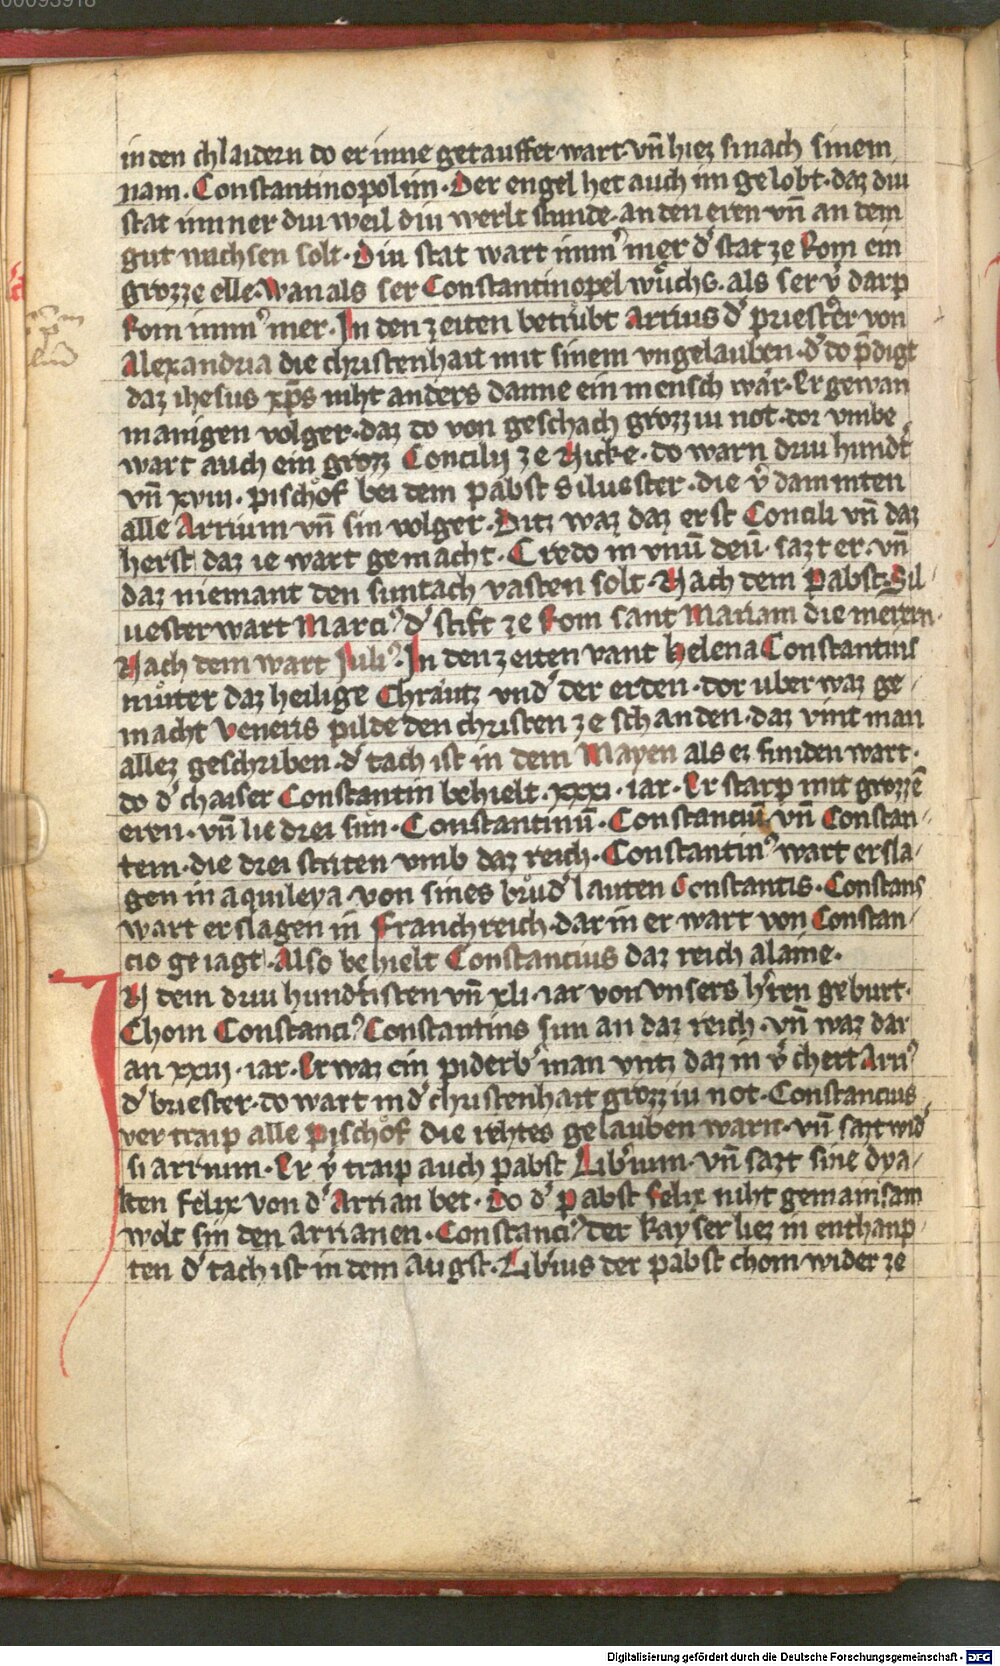 in den chlaidern do er inne getauffet wart· vn̄ hiez si nach sinem
nam· Constantinopolim· Der engel het auch im gelobt· daz diu
stat immer diu weil diu werlt stunde· an den eren vn̄ an dem
gut wachsen solt· Diu stat wart imm̾ mer d̾ stat ze Rom ein
grozze elle· Wan als ser Constantinopel wůchs· als ser v̾darp
Rom imm̾ mer· In den zeiten betrubt Arrius d̾ priester von
Alexandria die christenhait mit sinem vngelauben· d̾ do p̄digt
daz ihesus xp̄s niht anders danne ein mensch wår· Er gewan
manigen volger· daz do von geschach grozziu not· dor vmbe
wart auch ein grozz Concilij ze Nicke· do warn driu hundt̾
vn̄ xviii· pischof bei dem pabst Siluester· die v̾dammten
alle Arrium vn̄ sin volger· Ditz waz daz erst Concili vn̄ daz
herst daz ie wart gemacht· Credo in vnū deū· sazt er· vn̄
daz niemant den suntach vasten solt· Nach dem Pabst Sil/
uester wart Marci᾽ d̾ stift ze Rom sant Mariam die merern·
Nach dem wart Juli᾽· In den zeiten vant Helena Constantins
můter daz heilige Chrautz vnd̾ der erden· dor uber waz ge/
macht Veneris pilde den christen ze schanden· daz vint man
allez geschriben· d̾ tach ist in dem Mayen als ez funden wart·
do d̾ chaiser Constantin behielt· xxxi· iar· Er starp mit grozzē
eren· vn̄ lie drei sun· Constantinū· Constanciū· vn̄ Constan/
tem· die drei striten vmb daz reich· Constantin᾽ wart ersla/
gen in aquileya· von sines brůd̾ lauten Constantis· Constans
wart erslagen in Franchreich· dar in er wart von Constan/
cio geiagt· Also behielt Constancius daz reich alaine·
IN dem driu hundtisten vn̄ xli· iar von vnsers h̾ren geburt·
Chom Constanci᾽ Constantins sun an daz reich· vn̄ waz dar
an xxiii· iar· Er waz ein piderb̾ man vntz daz in v̾chert Arri᾽
d̾ briester· do wart in d̾ christenhait grozziu not· Constancius
vertraip alle Pischof die rehtes gelauben warn· vn̄ sazt wid̾
si arrium· Er v̾traip auch pabst Lib̾ium· vn̄ sazt sine dya/
ken Felix von d̾ Arrian bet· Do d̾ pabst Felix niht gemainsam
wolt sin den arrianen· Constanci᾽ der kayser liez in enthaup/
ten d̾ tach ist in dem Augst· Lib̾ius der pabst chom wider ze
Digitalisierung gefördert durch die Deutsche Forschungsgemeinschaft - DFG